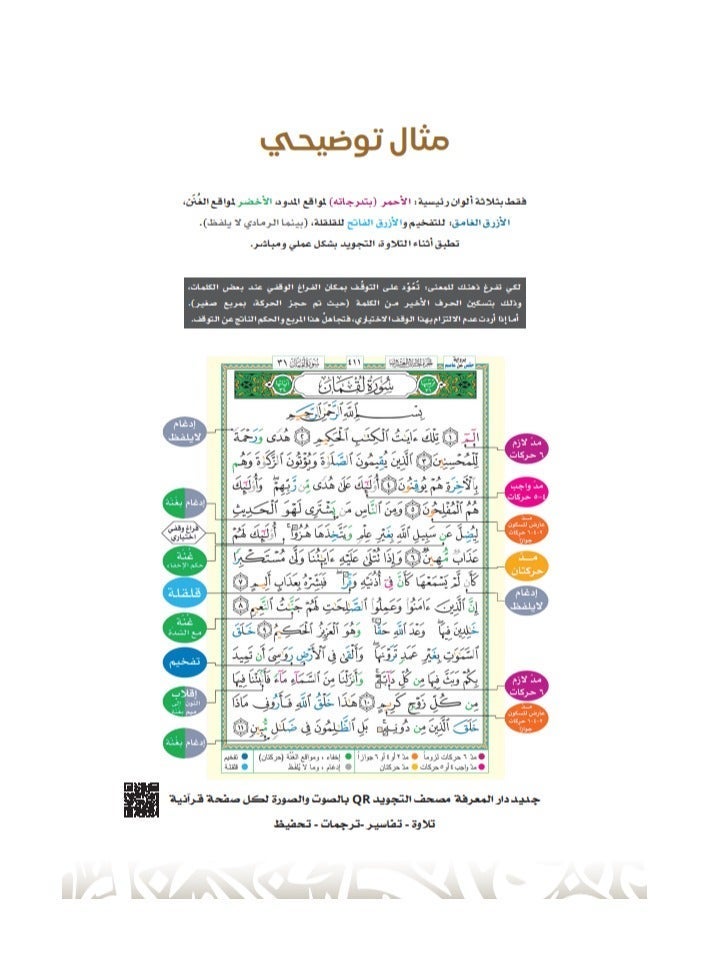 مثال توضيحي
فقط بثلاثة ألوان رئيسية: الأحمر (بتدرجاته) لمواقع المدود، الأخضر لمواقع الغُنَن،
الأزرق الغامق: للتفخيم والأزرق الفاتح للقلقلة، (بينما الرمادي لا يلفظ).
تطبق أثناء التلاوة، التجويد بشكل عملي ومباشر.
لكي تفرغ ذهنك للمعنى: تُعَوَّد على التوقّف بمكان الفراغ الوقفي عند بعض الكلمات،
وذلك بتسكين الحرف الأخير من الكلمة (حيث تم حجز الحركة، بمربع صغير).
أما إذا أردت عدم الالتزام بهذا الوقف الاختياري، فتجاهلْ هذا المربع والحكم الناتج عن التوقف.
برواية
حفص عن عاصم
٤١١
سورة لقمان ٣١
سُورَةُ لُقْمَانَ
بِسْمِ اللَّهِ الرَّحْمَٰنِ الرَّحِيمِ
الٓمٓ ١ تِلْكَ ءَايَٰتُ الْكِتَٰبِ الْحَكِيمِ ٢ هُدًى وَرَحْمَةً
لِّلْمُحْسِنِينَ ٣ الَّذِينَ يُقِيمُونَ الصَّلَوٰةَ وَيُؤْتُونَ الزَّكَوٰةَ وَهُم
بِالْءَاخِرَةِ هُمْ يُوقِنُونَ ٤ أُو۟لَٰٓئِكَ عَلَىٰ هُدًى مِّن رَّبِّهِمْ وَأُو۟لَٰٓئِكَ
هُمُ الْمُفْلِحُونَ ٥ وَمِنَ النَّاسِ مَن يَشْتَرِى لَهْوَ الْحَدِيثِ
لِيُضِلَّ عَن سَبِيلِ اللَّهِ بِغَيْرِ عِلْمٍ وَيَتَّخِذَهَا هُزُوًا أُو۟لَٰٓئِكَ لَهُمْ
عَذَابٌ مُّهِينٌ ٦ وَإِذَا تُتْلَىٰ عَلَيْهِ ءَايَٰتُنَا وَلَّىٰ مُسْتَكْبِرًا
كَأَن لَّمْ يَسْمَعْهَا كَأَنَّ فِىٓ أُذُنَيْهِ وَقْرًا فَبَشِّرْهُ بِعَذَابٍ أَلِيمٍ ٧
إِنَّ الَّذِينَ ءَامَنُوا۟ وَعَمِلُوا۟ الصَّٰلِحَٰتِ لَهُمْ جَنَّٰتُ النَّعِيمِ ٨
خَٰلِدِينَ فِيهَا وَعْدَ اللَّهِ حَقًّا وَهُوَ الْعَزِيزُ الْحَكِيمُ ٩ خَلَقَ
السَّمَٰوَٰتِ بِغَيْرِ عَمَدٍ تَرَوْنَهَا وَأَلْقَىٰ فِى الْأَرْضِ رَوَٰسِىَ أَن تَمِيدَ
بِكُمْ وَبَثَّ فِيهَا مِن كُلِّ دَآبَّةٍ وَأَنزَلْنَا مِنَ السَّمَآءِ مَآءً فَأَنۢبَتْنَا فِيهَا
مِن كُلِّ زَوْجٍ كَرِيمٍ ١٠ هَٰذَا خَلْقُ اللَّهِ فَأَرُونِى مَاذَا
خَلَقَ الَّذِينَ مِن دُونِهِ بَلِ الظَّٰلِمُونَ فِى ضَلَٰلٍ مُّبِينٍ ١١
مدّ لازم
٦ حركات
مد واجب
٤-٥ حركات
مد
عارض للسكون
٢-٤-٦ حركات
جوازاً
مد
حركتان
إدغام
لايلفظ
مدّ لازم
٦ حركات
مد
عارض للسكون
٢-٤-٦ حركات
جوازاً
إدغام
لايلفظ
إدغام بغنة
فراغ وقفي
اختياري
غُنة
حكم الإخفاء
قلقلة
غُنة
مع الشدة
تفخيم
إقلاب
النون إلى
ميم بغنة
إدغام بغنة
مدّ ٦ حركات لزوماً مدّ ٢ أو ٤ أو ٦ جوازاً إخفاء، ومواقع الغُنّة (حركتان) تفخيم
مدّ واجب ٤ أو ٥ حركات مدّ حركتان إدغام، وما لا يُلفَظ قلقلة
جديد دار المعرفة مصحف التجويد QR بالصوت والصورة لكل صفحة قرآنية
تلاوة - تفاسير -ترجمات - تحفيظ